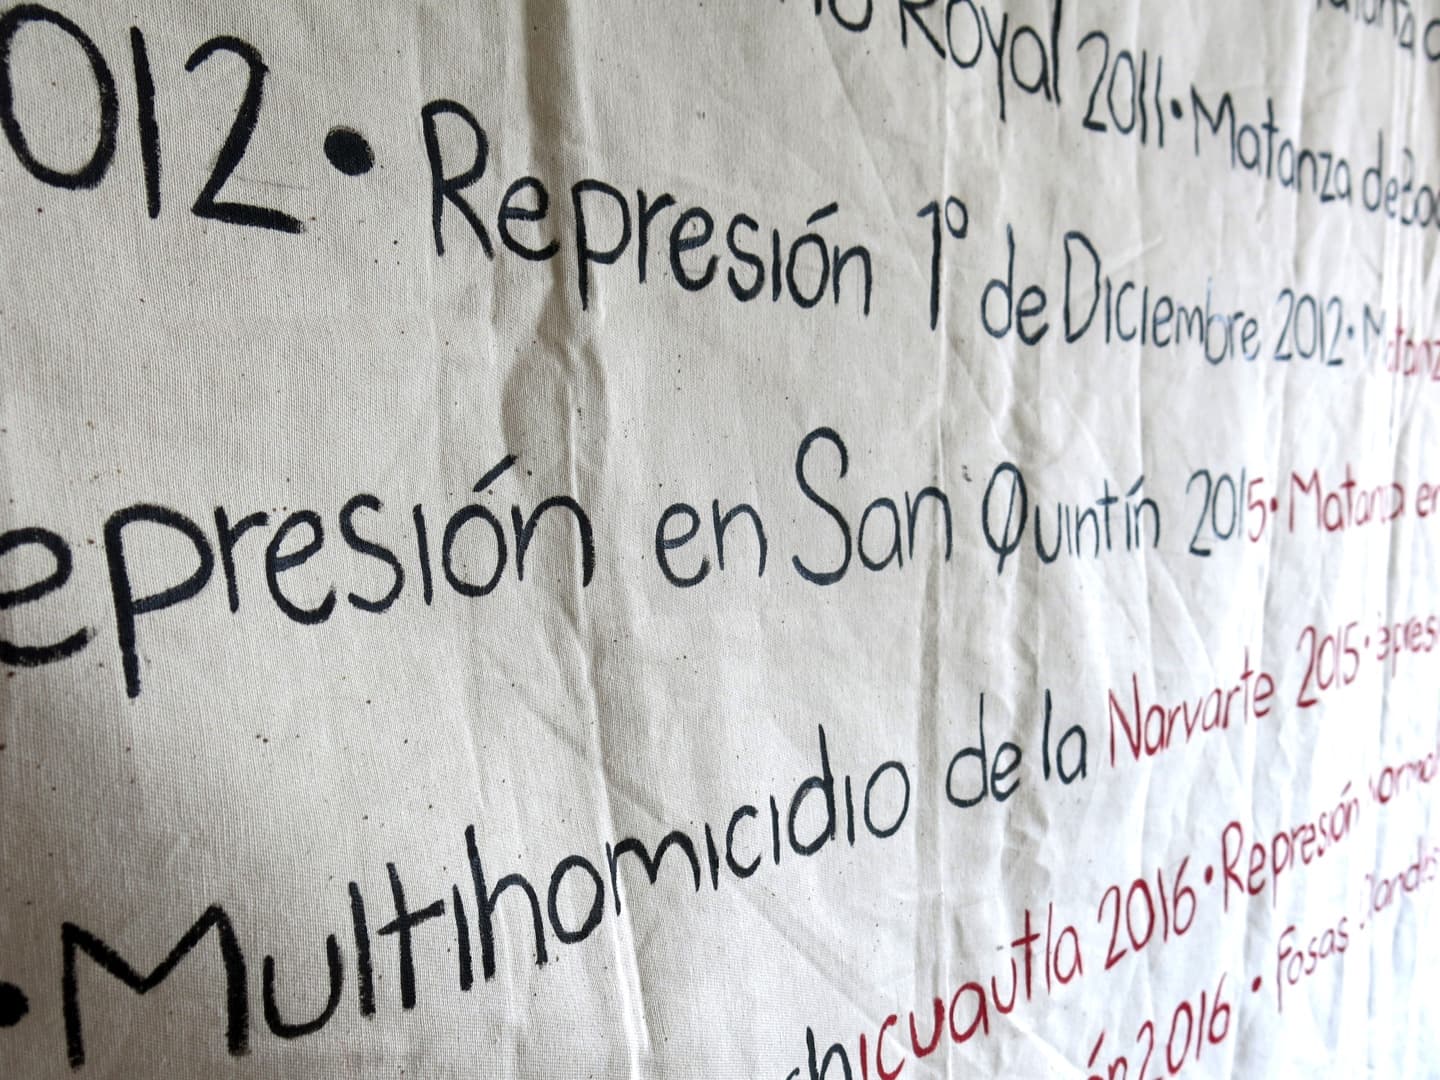 Royal 2011 • Matanza de
012 • Represión 1º de Diciembre 2012 •
epresión en San Quintín 2015 • Matanza en
• Multihomicidio de la Narvarte 2015 •
hicuautla 2016 • Represión
2016 • Fosas